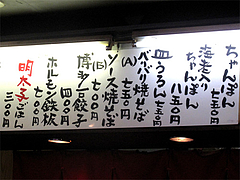 ちゃんぽん
七〇〇円
海老入り
ちゃんぽん
八五〇円
皿うどん七五〇円
バリバリ焼そば
(A) 七五〇円
ソース焼そば
(B) 七〇〇円
博多一口餃子
四〇〇円
ホルモン鉄板
七〇〇円
明太子ごはん
三〇〇円